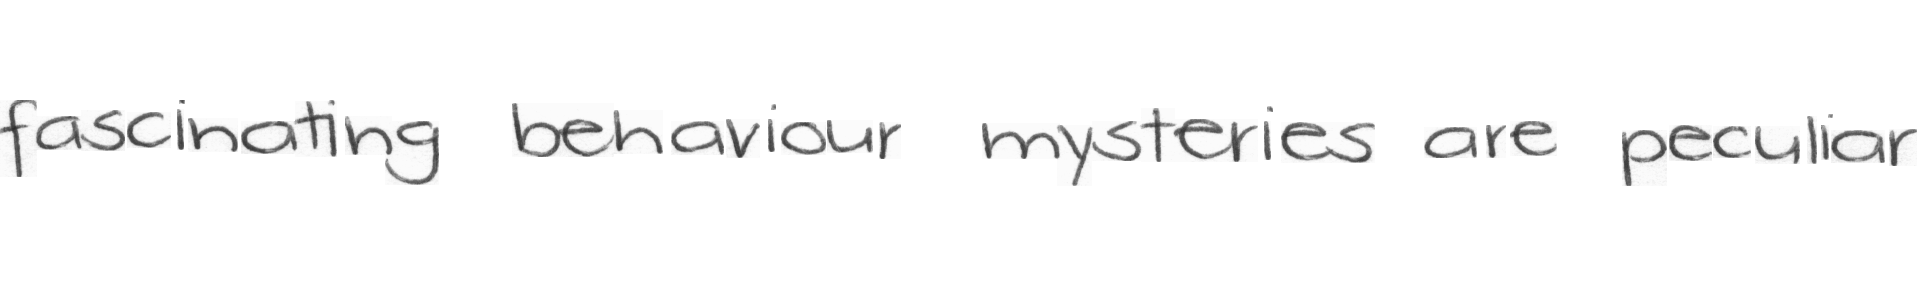 fascinating behaviour mysteries are peculiar